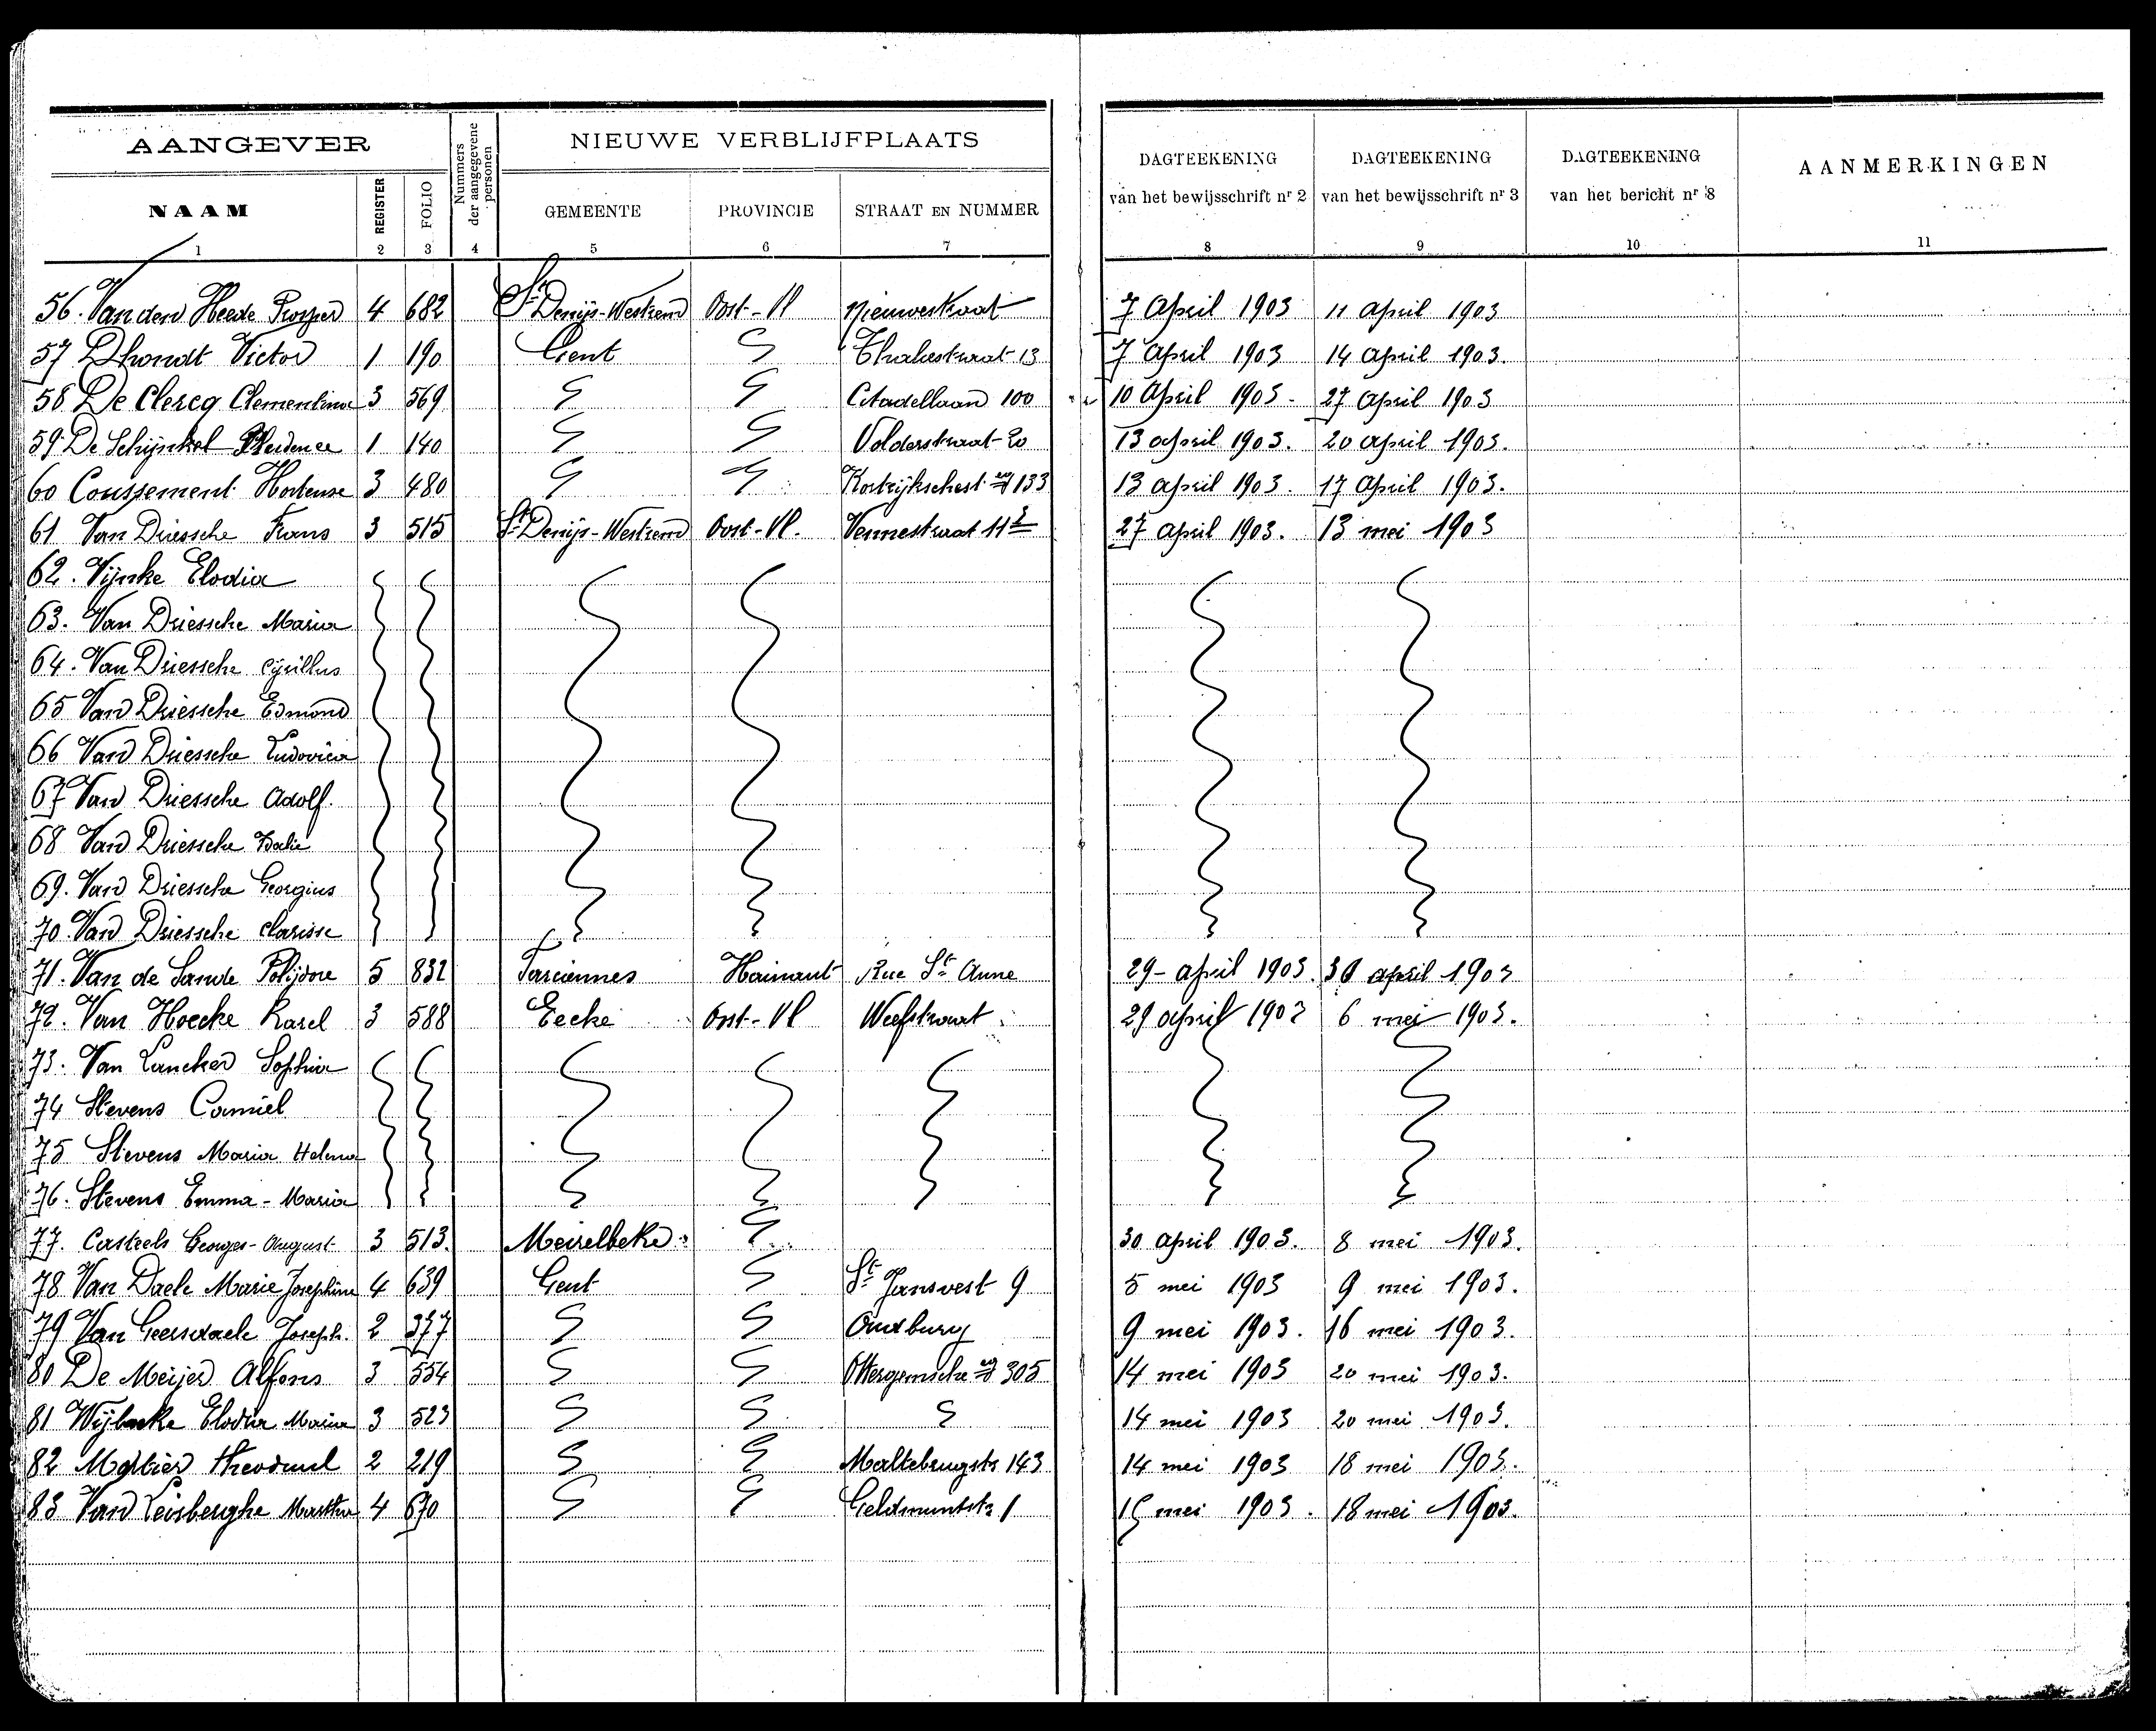 AANGEVER Nummers der aangegevene personen NIEUWE VERBLIJFPLAATS DAGTEEKENING van het bewijsschrift nr 2 DAGTEEKENING van het bewijsschrift nr 3 DAGTEEKENING van het bericht nr 8 AANMERKINGEN
NAAM REGISTER FOLIO GEMEENTE PROVINCIE STRAAT EN NUMMER
1 2 3 4 5 6 7 8 9 10 11
56. Van den Heede Prosper 4 682 St Denijs-Westrem Oost-Vl Nieuwestraat 7 April 1903 11 April 1903
57 Dhondt Victor 1 190 Gent 13 7 April 1903 14 April 1903.
58 De Clercq Clementina 3 569 Citadellaan 100 10 April 1903. 27 April 1903
59 De Schijnkel 1 140 Volderstraat 20 13 april 1903. 20 april 1903.
60 Coussement Hortense 3 480 Kortrijkschest. wg 133 13 april 1903. 17 April 1903.
61 Van Driessche Frans 3 515 St Denijs-Westrem Oost-Vl. Vennestraat 11 27 april 1903. 13 mei 1903
62. Vijnke Elodia
63. Van Driessche Maria
64. Van Driessche Cyrillus
65 Van Driessche Edmond
66 Van Driessche Ludovica
67 Van Driessche Adolf.
68 Van Driessche
69. Van Driessche Georgius
70. Van Driessche Clarisse
71. Van de Sande Polijdore 5 832 Farciennes Hainaut Rue Ste Anne 29 - april 1903. 30 april 1903
72. Van Hoecke Karel 3 588 Eecke Oost-Vl 29 april 1903 6 mei 1903.
73. Van Lancker Sophia
74 Stevens Camiel
75 Stevens Maria Helena
76. Stevens Emma - Maria
77. Casteels Georges-August 3 513. Meirelbeke 30 april 1903. 8 mei 1903.
78 Van Daele Marie Josephine 4 639 Gent St Jansvest 9 5 mei 1903 9 mei 1903.
79 Van Geersdaele Joseph. 2 377 Oudburg 9 mei 1903. 16 mei 1903.
80 De Meijer Alfons 3 554 Ottergemsche wg 305 14 mei 1903 20 mei 1903.
81 Elodia Maria 3 523 14 mei 1903 20 mei 1903.
82 2 219 Maltebrugstr 143 14 mei 1903 18 mei 1903.
83 Van Leisberghe Martha 4 670 Geldmuntstr 1 15 mei 1903. 18 mei 1903.